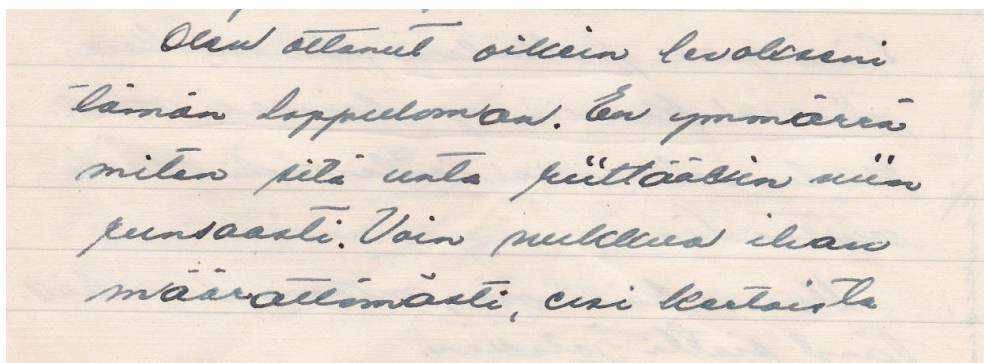 Olen ottanut oikein levokseni
tämän loppuloman. En ymmärrä
miten sitä unta riittääkin niin
runsaasti. Voin nukkua ihan
määrättömästi, eri kertoista